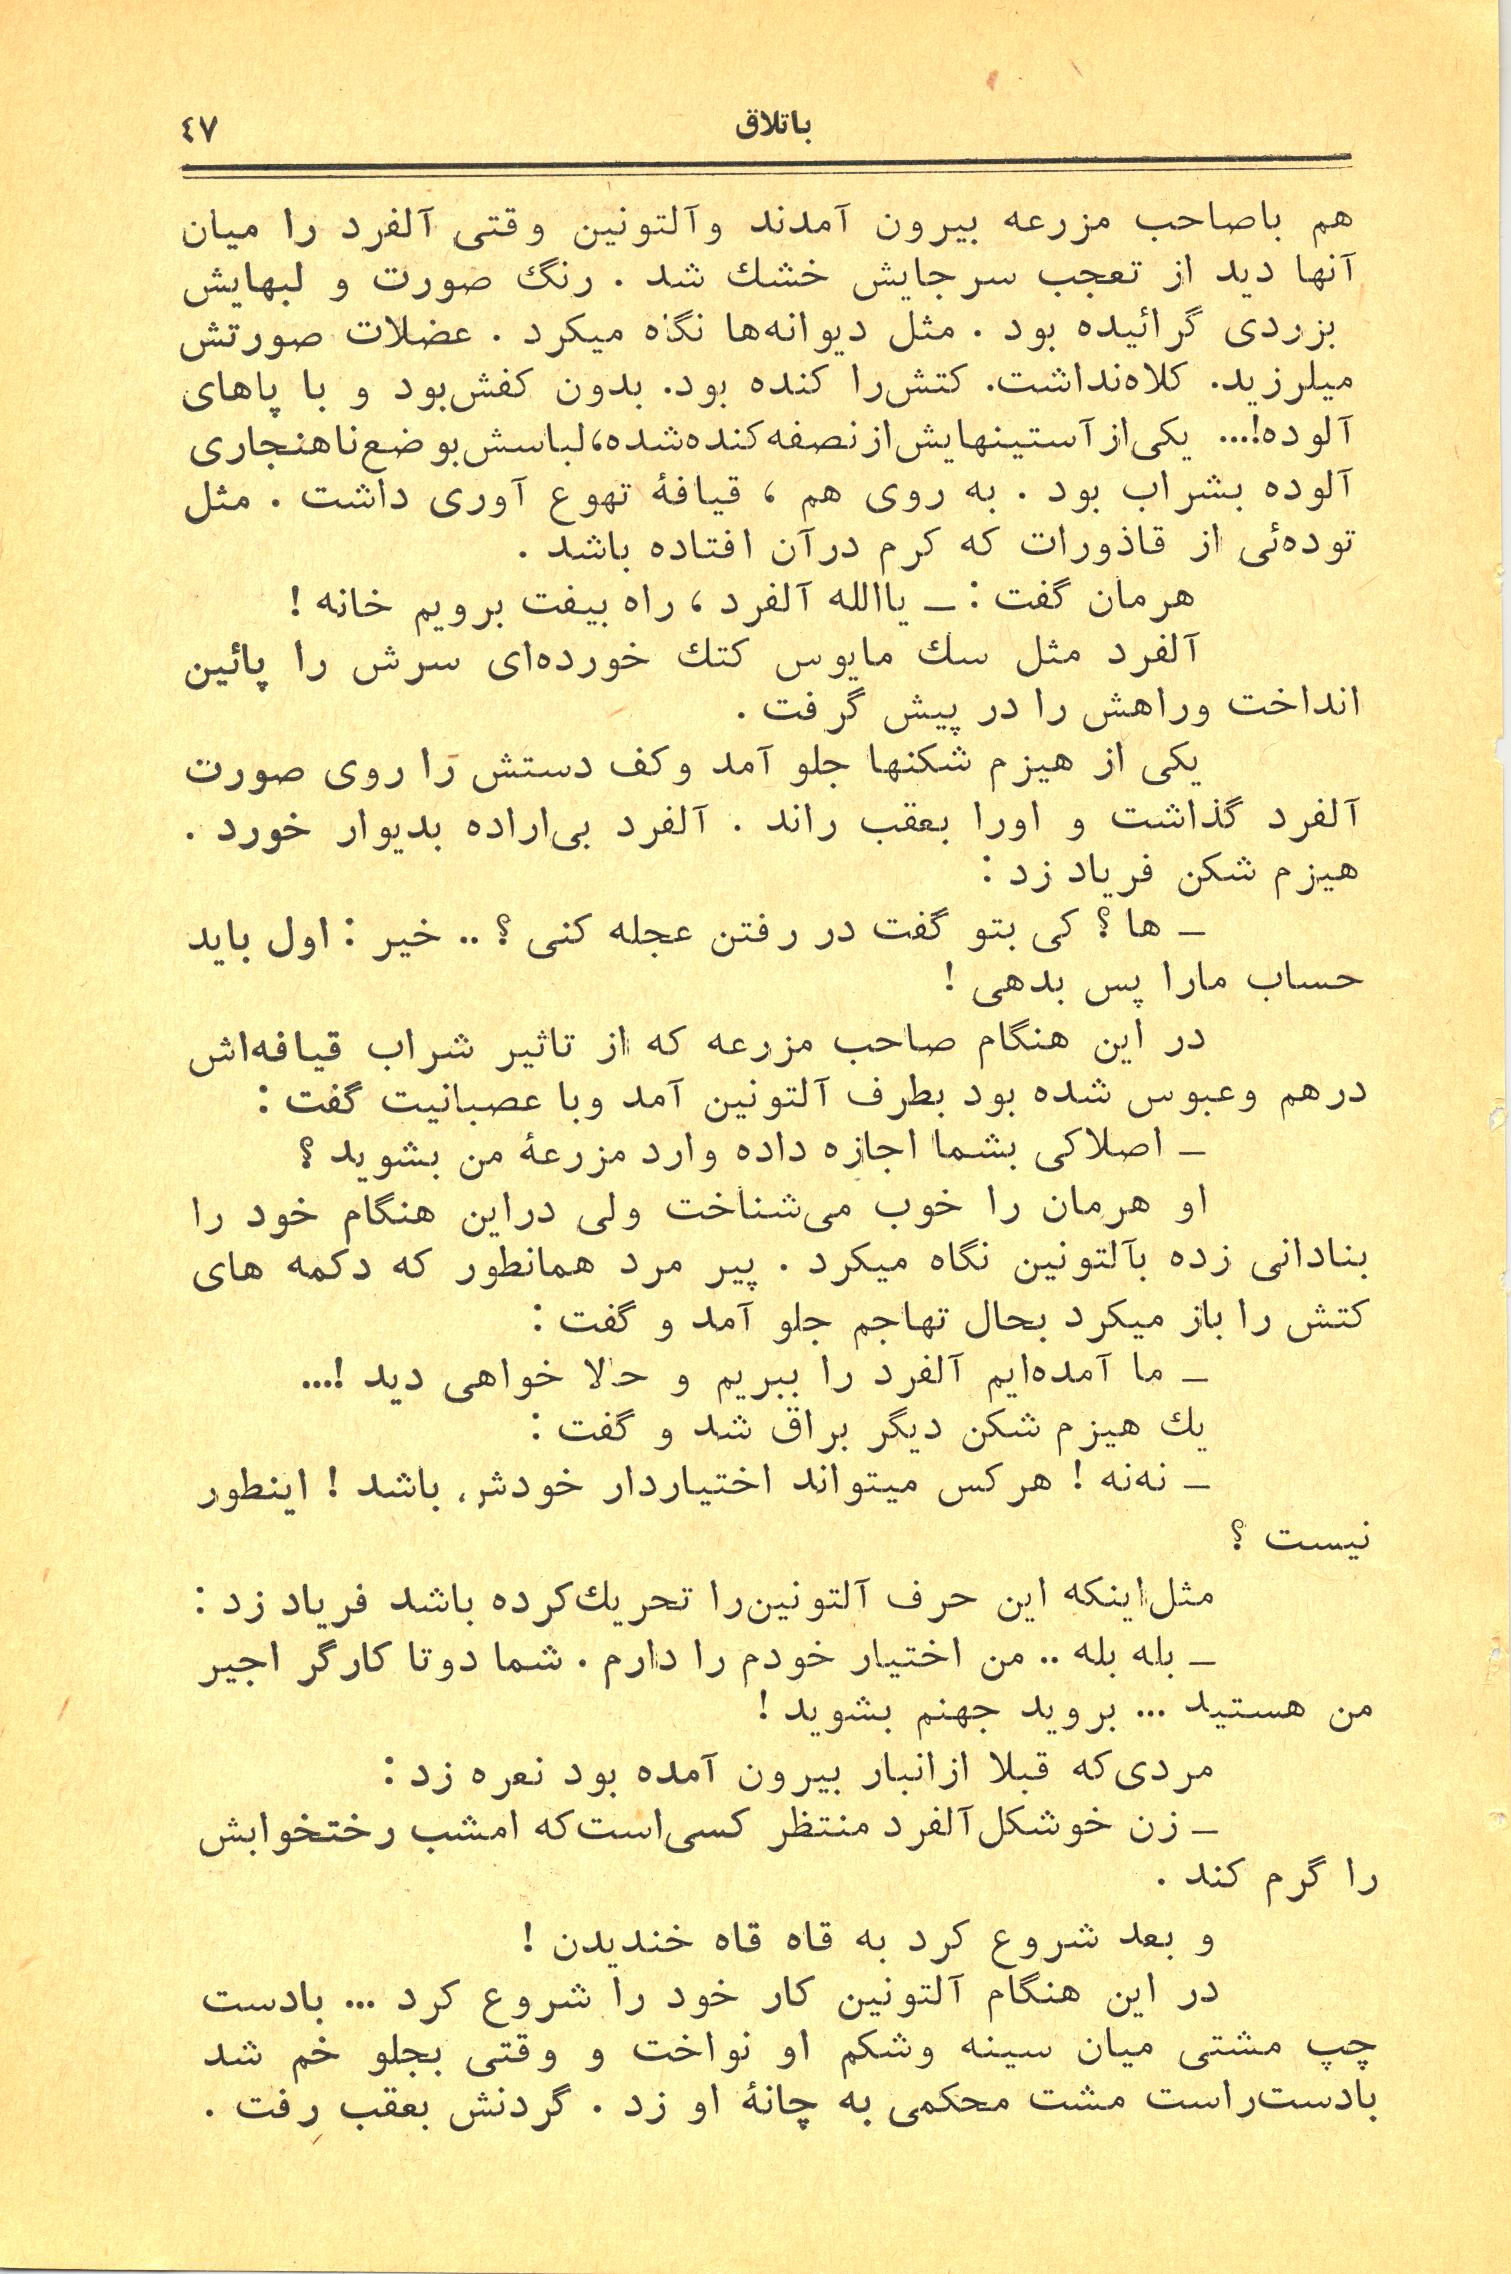 باتلاق ٤٧
هم باصاحب مزرعه بیرون آمدند وآلتونین وقتی آلفرد را میان
آنها دید از تعجب سرجایش خشك شد . رنگ صورت و لبهایش
بزردی گرائیده بود . مثل دیوانه‌ها نگاه میکرد . عضلات صورتش
میلرزید. کلاه‌نداشت. کتش‌را کنده بود. بدون کفش‌بود و با پاهای
آلوده!... یکی‌از آستینهایش‌از نصفه کنده‌شده، لباسش‌بوضع‌ناهنجاری
آلوده بشراب بود . به روی هم ، قیافهٔ تهوع آوری داشت . مثل
توده‌ئی از قاذورات که کرم درآن افتاده باشد .
هرمان گفت : ـ یاالله آلفرد ، راه بیفت برویم خانه !
آلفرد مثل سك مایوس کتك خورده‌ای سرش را پائین
انداخت وراهش را در پیش گرفت .
یکی از هیزم شکنها جلو آمد وکف دستش را روی صورت
آلفرد گذاشت و اورا بعقب راند . آلفرد بی‌اراده بدیوار خورد .
هیزم شکن فریاد زد :
ـ ها ؟ کی بتو گفت در رفتن عجله کنی ؟ .. خیر : اول باید
حساب مارا پس بدهی !
در این هنگام صاحب مزرعه که از تاثیر شراب قیافه‌اش
درهم وعبوس شده بود بطرف آلتونین آمد وبا عصبانیت گفت :
ـ اصلاکی بشما اجازه داده وارد مزرعهٔ من بشوید ؟
او هرمان را خوب می‌شناخت ولی دراین هنگام خود را
بنادانی زده بآلتونین نگاه میکرد . پیر مرد همانطور که دکمه های
کتش را باز میکرد بحال تهاجم جلو آمد و گفت :
ـ ما آمده‌ایم آلفرد را ببریم و حالا خواهی دید !...
یك هیزم شکن دیگر براق شد و گفت :
ـ نه‌نه ! هرکس میتواند اختیاردار خودش باشد ! اینطور
نیست ؟
مثل‌اینکه این حرف آلتونین‌را تحریك‌کرده باشد فریاد زد :
ـ بله بله .. من اختیار خودم را دارم . شما دوتا کارگر اجیر
من هستید ... بروید جهنم بشوید !
مردی‌که قبلا ازانبار بیرون آمده بود نعره زد :
ـ زن خوشکل‌آلفرد منتظر کسی‌است‌که امشب رختخوابش
را گرم کند .
و بعد شروع کرد به قاه قاه خندیدن !
در این هنگام آلتونین کار خود را شروع کرد ... بادست
چپ مشتی میان سینه وشکم او نواخت و وقتی بجلو خم شد
بادست‌راست مشت محکمی به چانهٔ او زد . گردنش بعقب رفت .